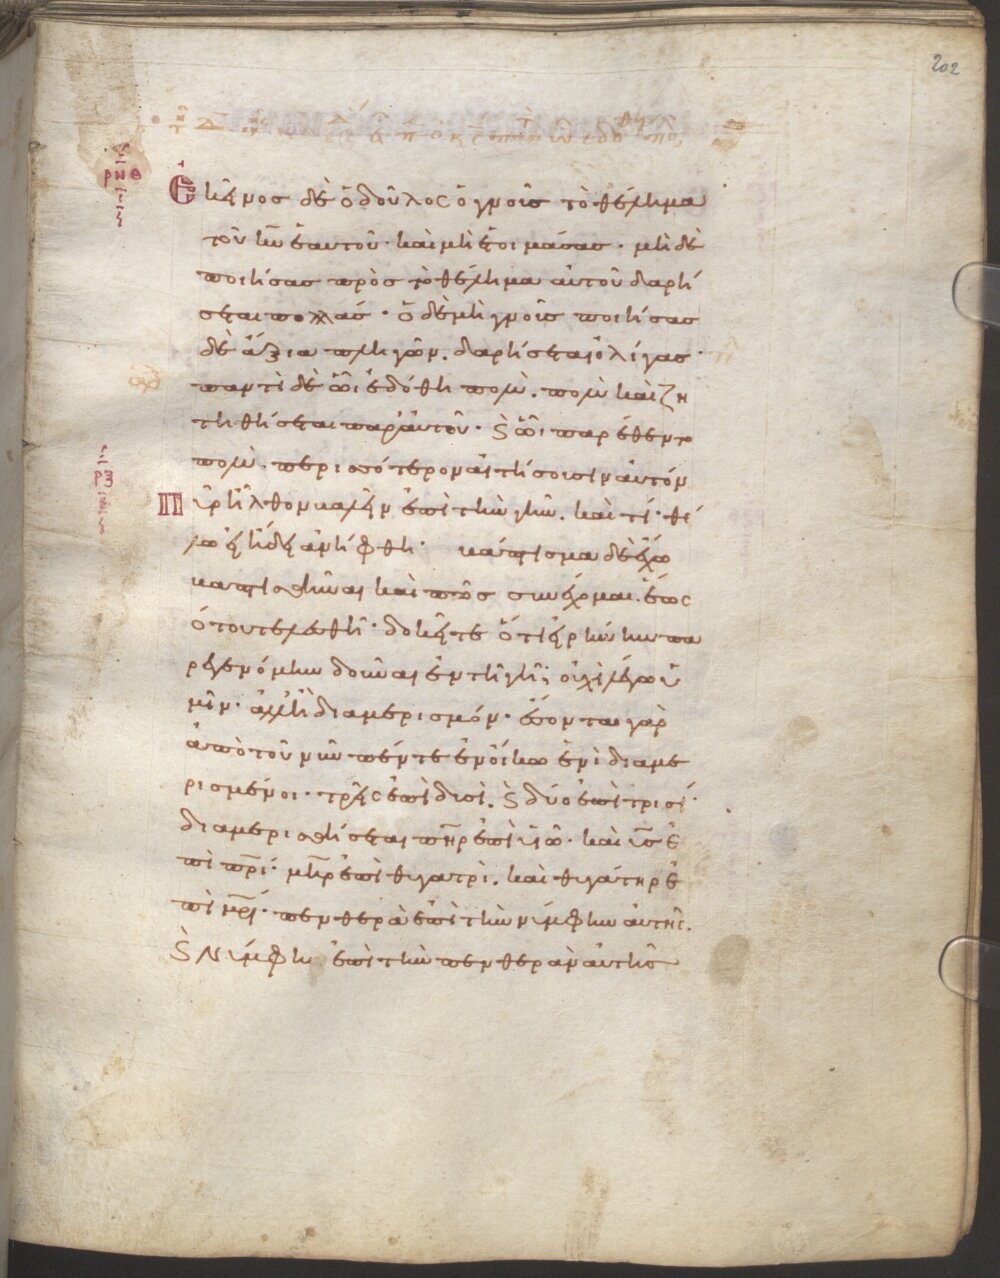 202
ρνθ
Ἐκεῖνος δὲ ὁ δοῦλος ὁ γνοὺς τὸ θέλημα
τοῦ κῦ ἑαυτοῦ· καὶ μὴ ἑτοιμάσας· μηδὲ
ποιήσας πρὸς τὸ θέλημα αὐτοῦ δαρή
σεται πολλάς· ὁ δὲ μὴ γνοὺς ποιήσας
δὲ ἄξια πληγῶν. δαρήσεται ὀλίγας·
παντὶ δὲ ὧι ἐδόθη πολὺ. πολὺ καὶ ζη
τηθήσεται παρ' αὐτοῦ· ϗ ὧι παρέθεντο
πολὺ. περισσότερον αἰτήσουσιν αὐτόν
ρξ
Πῦρ ἦλθον βαλεῖν ἐπὶ τὴν γῆν. καὶ τί θέ
λω εἰ ἤδη ἀνήφθη· βάπτισμα δὲ ἔχω
βαπτισθῆναι καὶ πῶς συνέχομαι. ἕως
ὅτου τελεσθῆ· δοκεῖτε ὅτι εἰρήνην πα
ρεγενόμην δοῦναι ἐν τῆ γῆ; οὐχὶ λέγω ὑ
μῖν· ἀλλ' ἢ διαμερισμόν· ἔσονται γὰρ
ἀπὸ τοῦ νῦν πέντε ἐν οἴκω ἑνὶ διαμε
ρισμένοι· τρεῖς ἐπὶ δυσί. ϗ δύο ἐπὶ τρισί·
διαμερισθήσεται πηρ ἐπὶ υἱῶ· καὶ υς ἐ
πὶ πρι· μηρ ἐπὶ θυγατρί. καὶ θυγάτηρ ἐ
πὶ μρι· πενθερὰ ἐπὶ τὴν νύμφην αὐτῆς.
ϗ νύμφη ἐπὶ τὴν πενθερὰν αὐτῆς